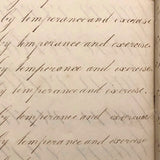 by temperance and exercise
by temperance and exercise.
by temperance and exercise.
by temperance and exercise.
by temperance and exercise.
by temperance and exercise.